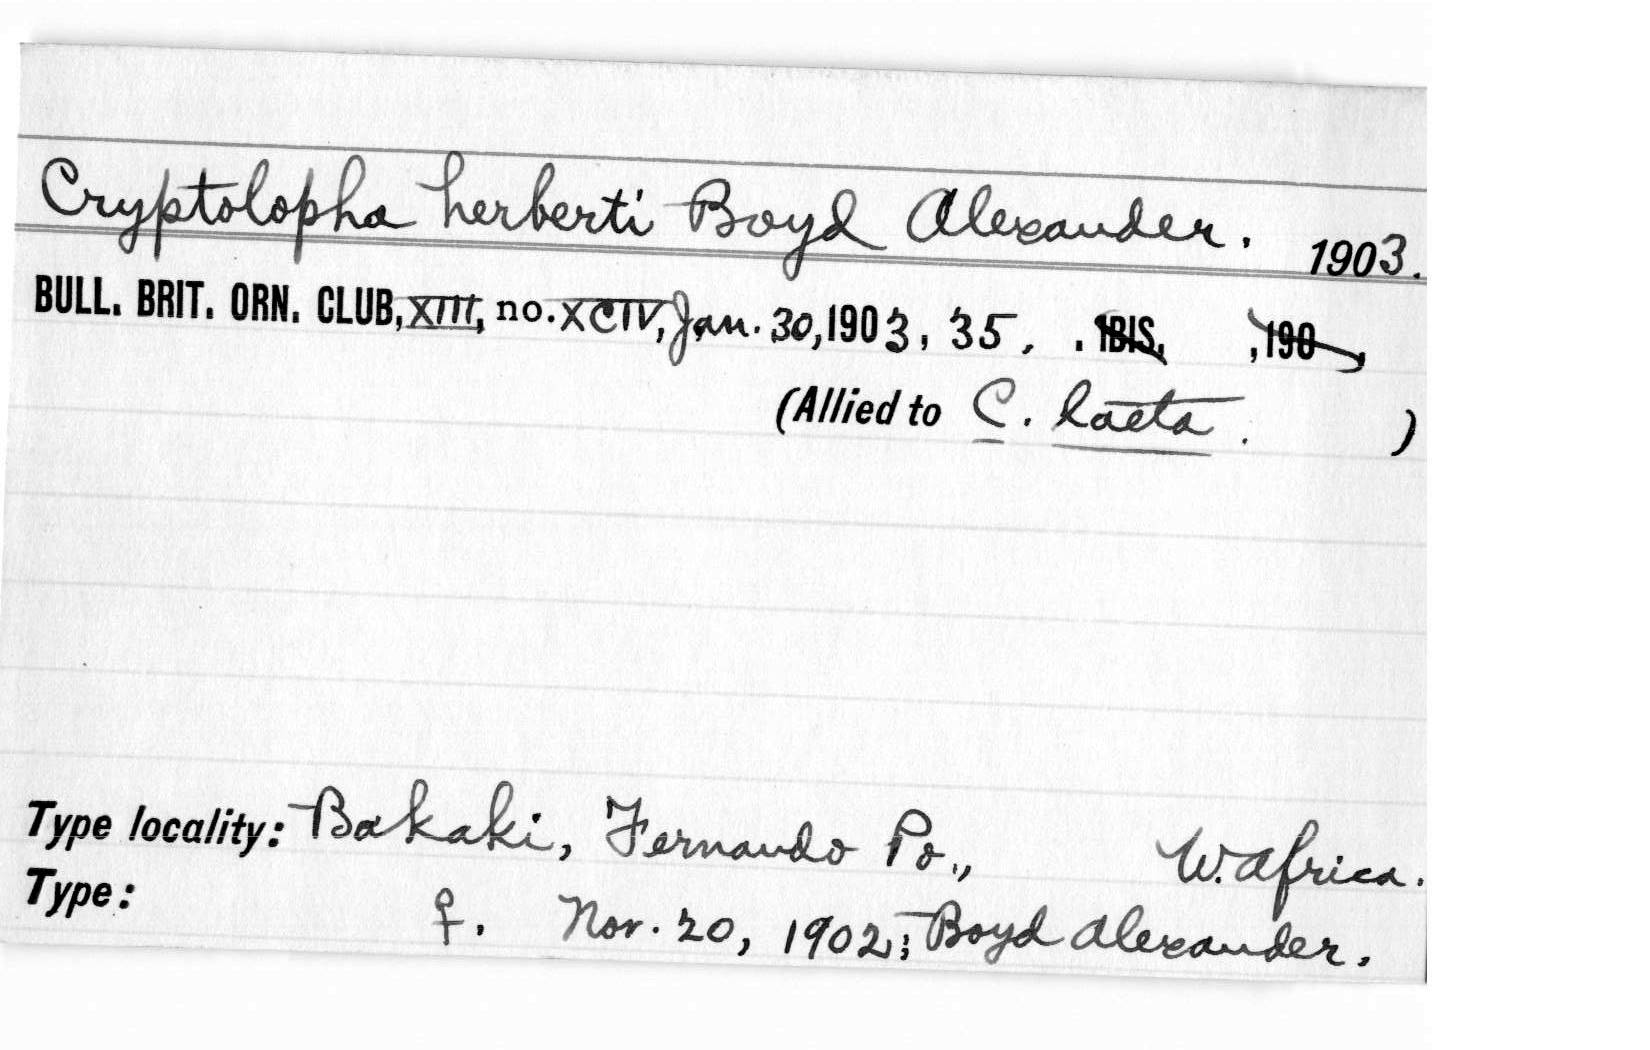 Cryptolopha herberti Boyd Alexander. 1903.
BULL. BRIT. ORN. CLUB, XIII, no. XCIV, Jan. 30, 1903, 35, . IBIS, , 190 ,
(Allied to C. laeta. )
Type locality: Bakaki, Fernando Po., W. Africa.
Type: ♀. Nov. 20, 1902; Boyd Alexander.